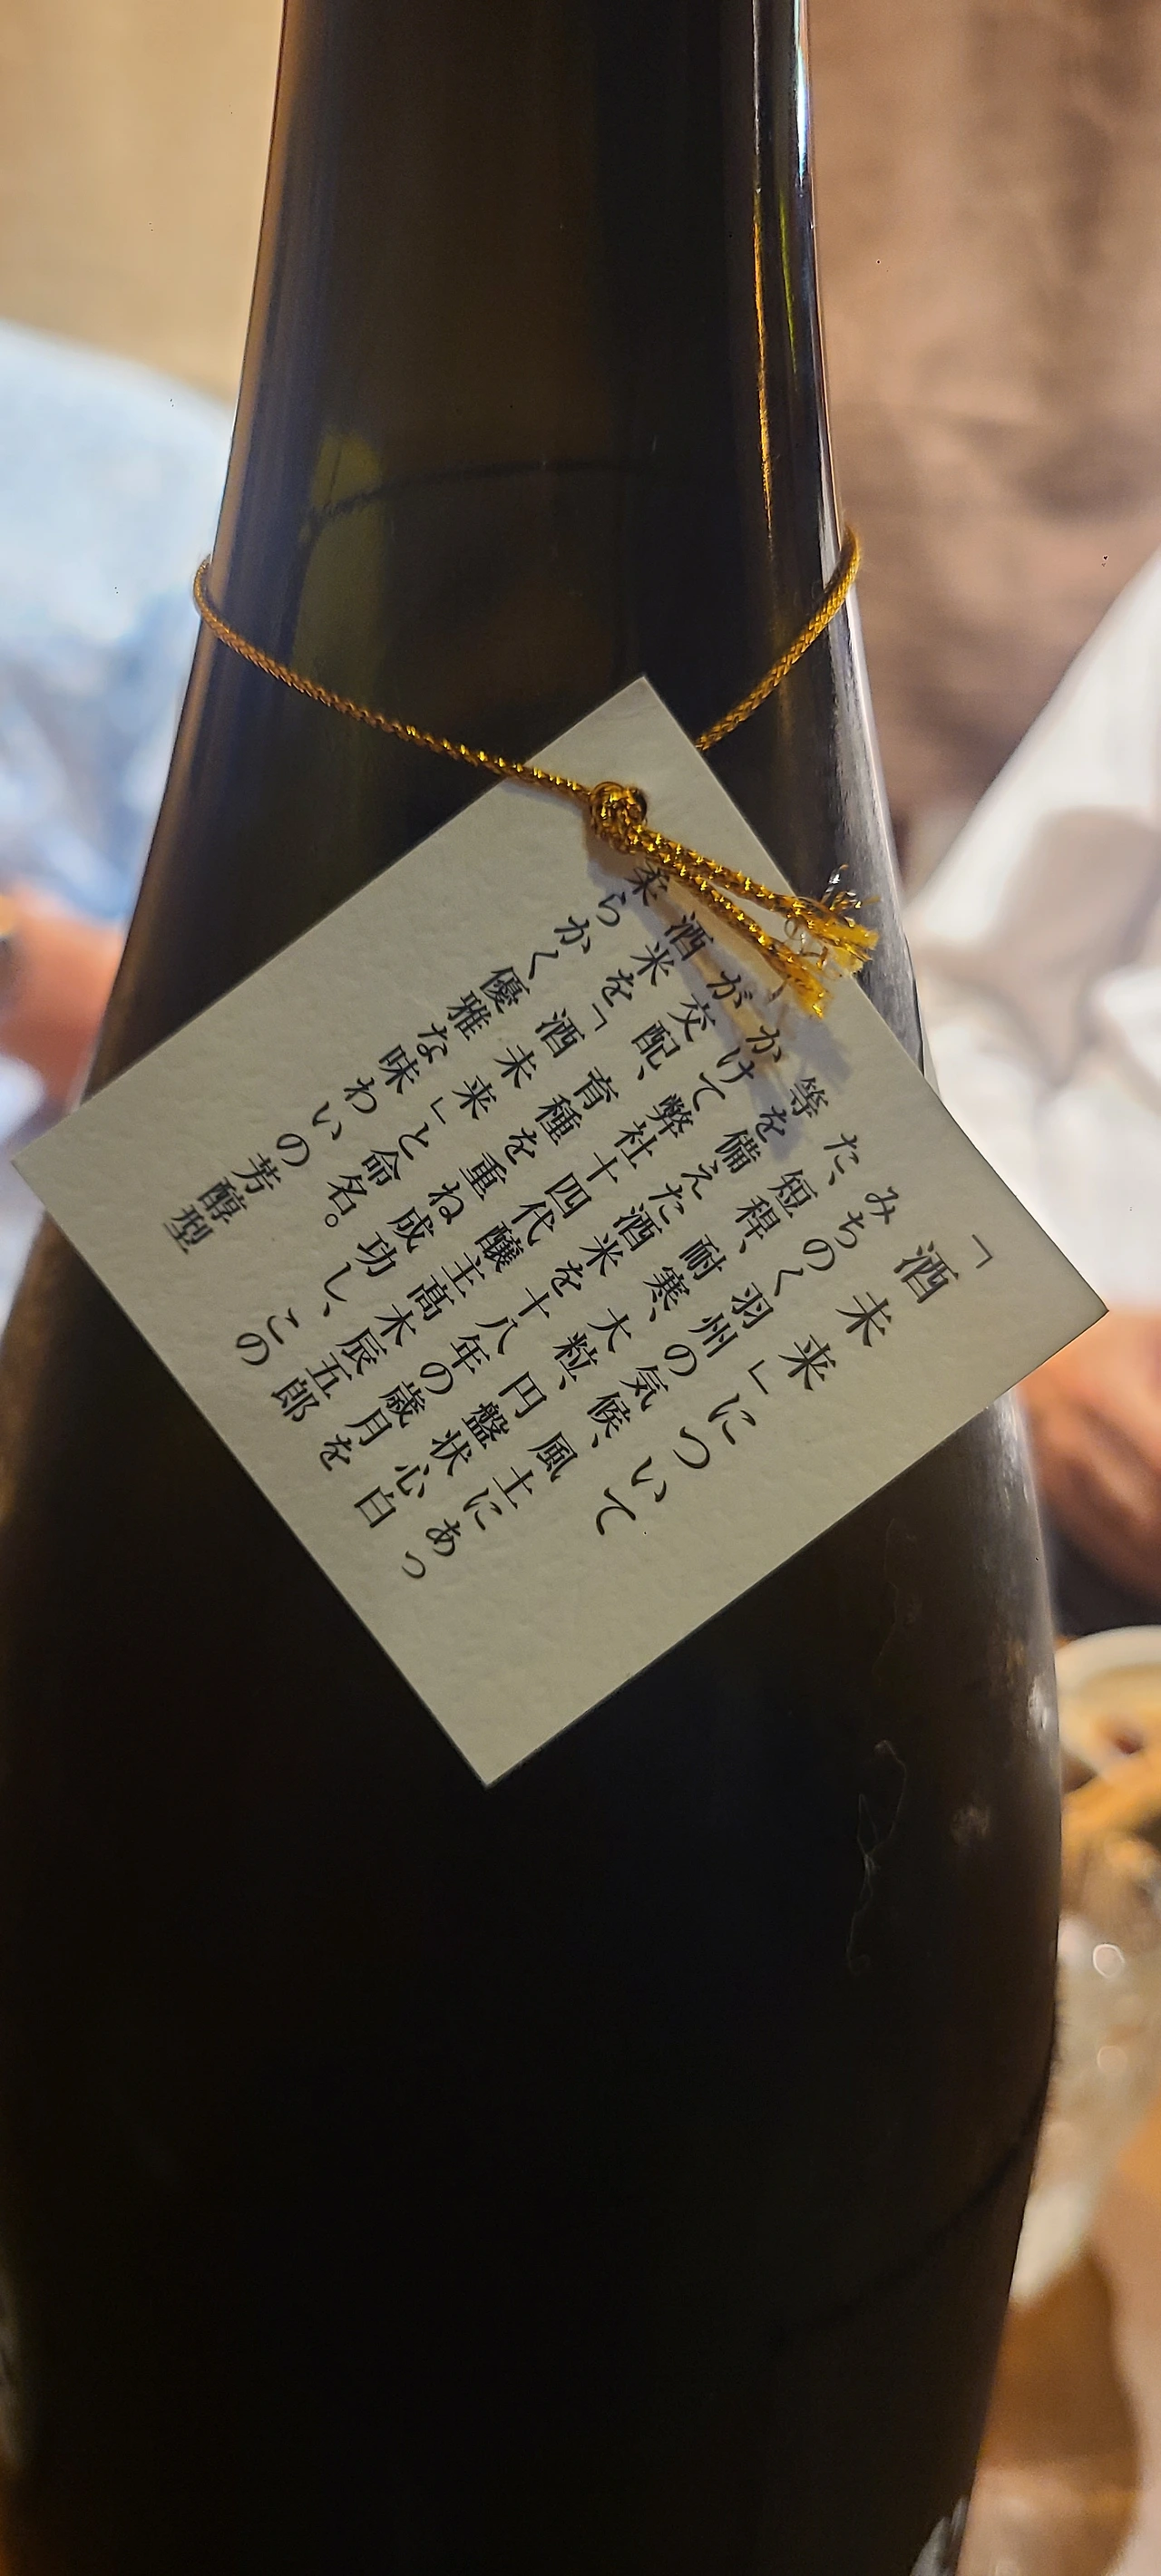 「酒未来」について
みちのく羽州の気候、風土にあっ
た、短稈、耐寒、大粒、円盤状心白
等を備えた酒米を十八年の歳月を
かけて弊社十四代醸主高木辰五郎
が交配、育種を重ね成功し、この
酒米を「酒未来」と命名。
柔らかく優雅な味わいの芳醇型